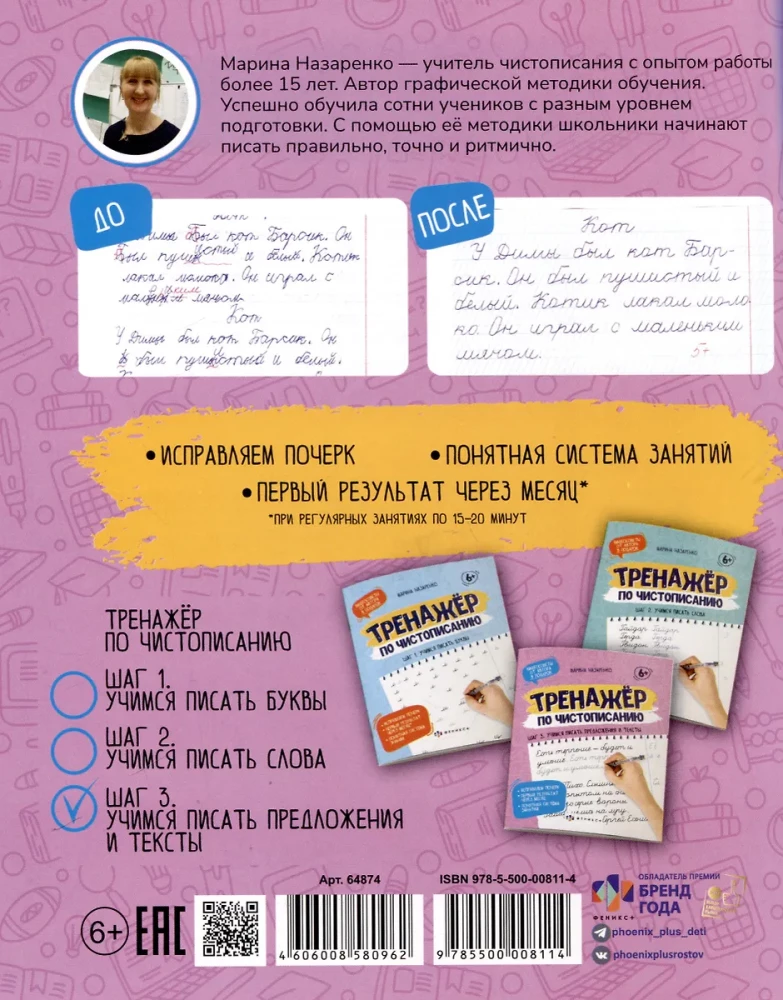 Марина Назаренко — учитель чистописания с опытом работы
более 15 лет. Автор графической методики обучения.
Успешно обучила сотни учеников с разным уровнем
подготовки. С помощью её методики школьники начинают
писать правильно, точно и ритмично.
ДО
Был кот Барсик. Он
и белый. Котик
лакал молоко. Он играл с
мячом.
Кот
У Димы был кот Барсик. Он
был пушистый и белый.
ПОСЛЕ
Кот
У Димы был кот Бар-
сик. Он был пушистый и
белый. Котик лакал моло
ко. Он играл с маленьким
мячом.
5+
•ИСПРАВЛЯЕМ ПОЧЕРК
•ПОНЯТНАЯ СИСТЕМА ЗАНЯТИЙ
•ПЕРВЫЙ РЕЗУЛЬТАТ ЧЕРЕЗ МЕСЯЦ*
*ПРИ РЕГУЛЯРНЫХ ЗАНЯТИЯХ ПО 15-20 МИНУТ
ТРЕНАЖЁР
ПО ЧИСТОПИСАНИЮ
ШАГ 1.
УЧИМСЯ ПИСАТЬ БУКВЫ
ШАГ 2.
УЧИМСЯ ПИСАТЬ СЛОВА
ШАГ 3.
УЧИМСЯ ПИСАТЬ ПРЕДЛОЖЕНИЯ
И ТЕКСТЫ
МАРИНА НАЗАРЕНКО
6+
ТРЕНАЖЁР
ПО ЧИСТОПИСАНИЮ
ШАГ 1. УЧИМСЯ ПИСАТЬ БУКВЫ
МАРИНА НАЗАРЕНКО
6+
ТРЕНАЖЁР
ПО ЧИСТОПИСАНИЮ
ШАГ 2. УЧИМСЯ ПИСАТЬ СЛОВА
МАРИНА НАЗАРЕНКО
6+
ТРЕНАЖЁР
ПО ЧИСТОПИСАНИЮ
ШАГ 3. УЧИМСЯ ПИСАТЬ ПРЕДЛОЖЕНИЯ И ТЕКСТЫ
Есть терпение – будет и
умение.
6+
EAC
Арт. 64874
4 606008 580962
ISBN 978-5-500-00811-4
9 785500 008114
ФЕНИКС+
ОБЛАДАТЕЛЬ ПРЕМИИ
БРЕНД
ГОДА
phoenix_plus_deti
phoenixplusrostov